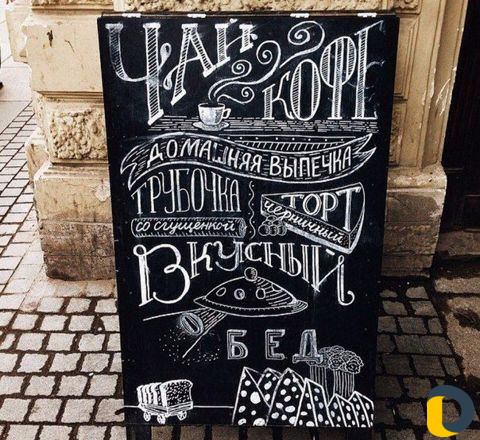 ЧАЙ
КОФЕ
ДОМАШНЯЯ ВЫПЕЧКА
ТРУБОЧКА
со сгущенкой
ТОРТ
черничный
ВКУСНЫЙ
БЕД